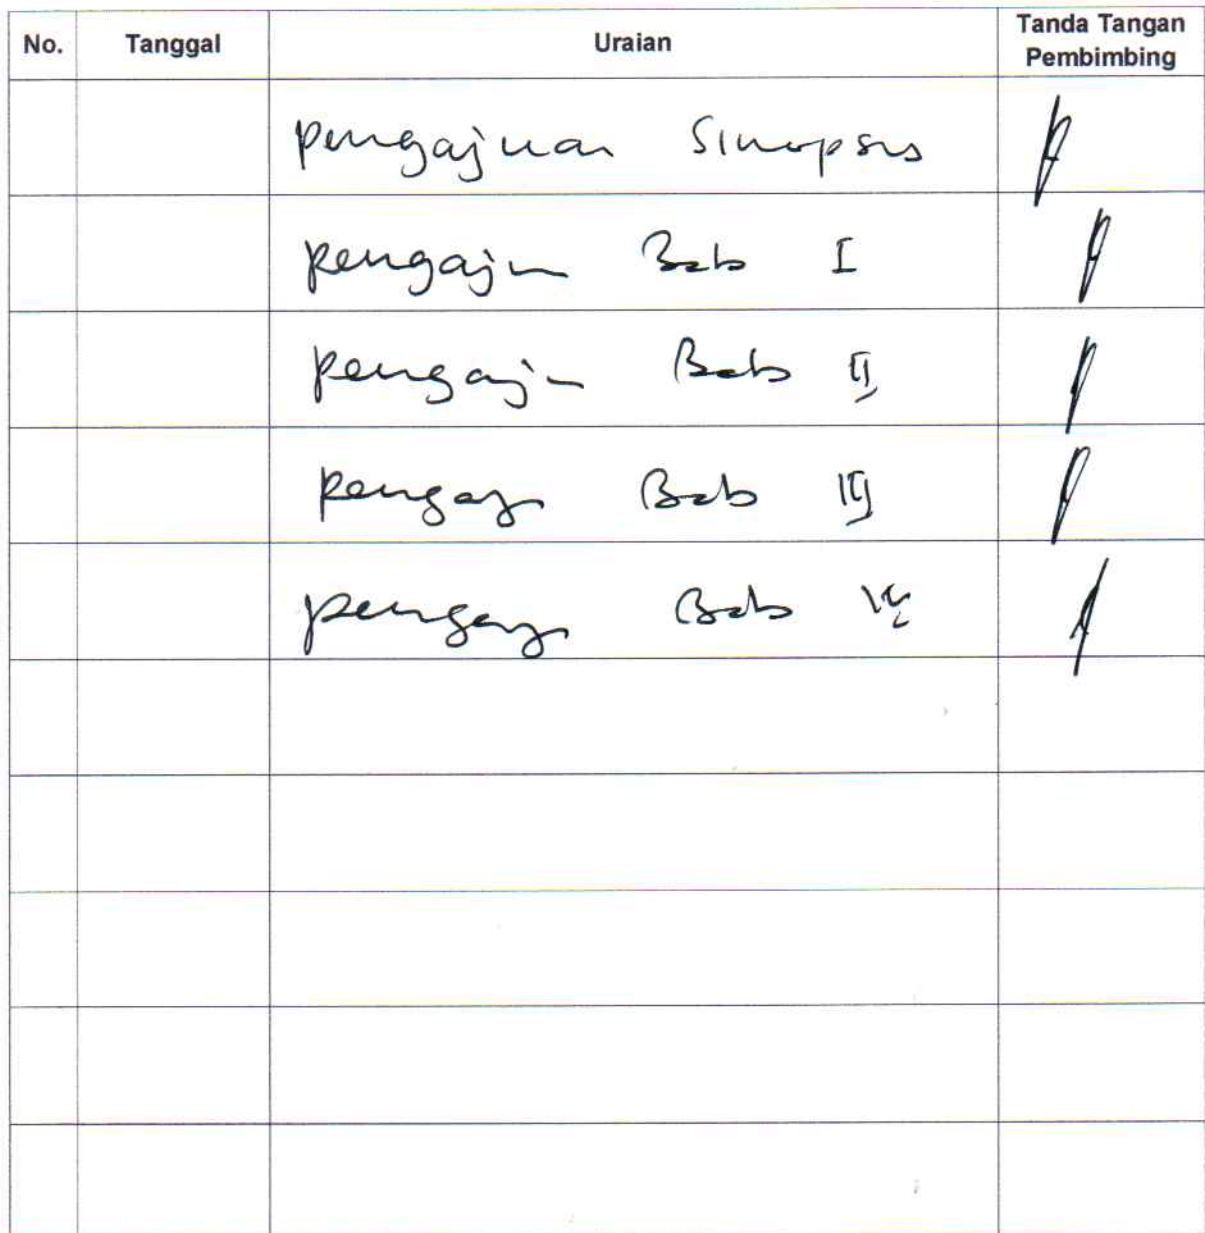 No. Tanggal Uraian Tanda Tangan Pembimbing
pengajuan Sinopsis
pengajun Bab I
pengajn Bab II
Bab III
Bab IV